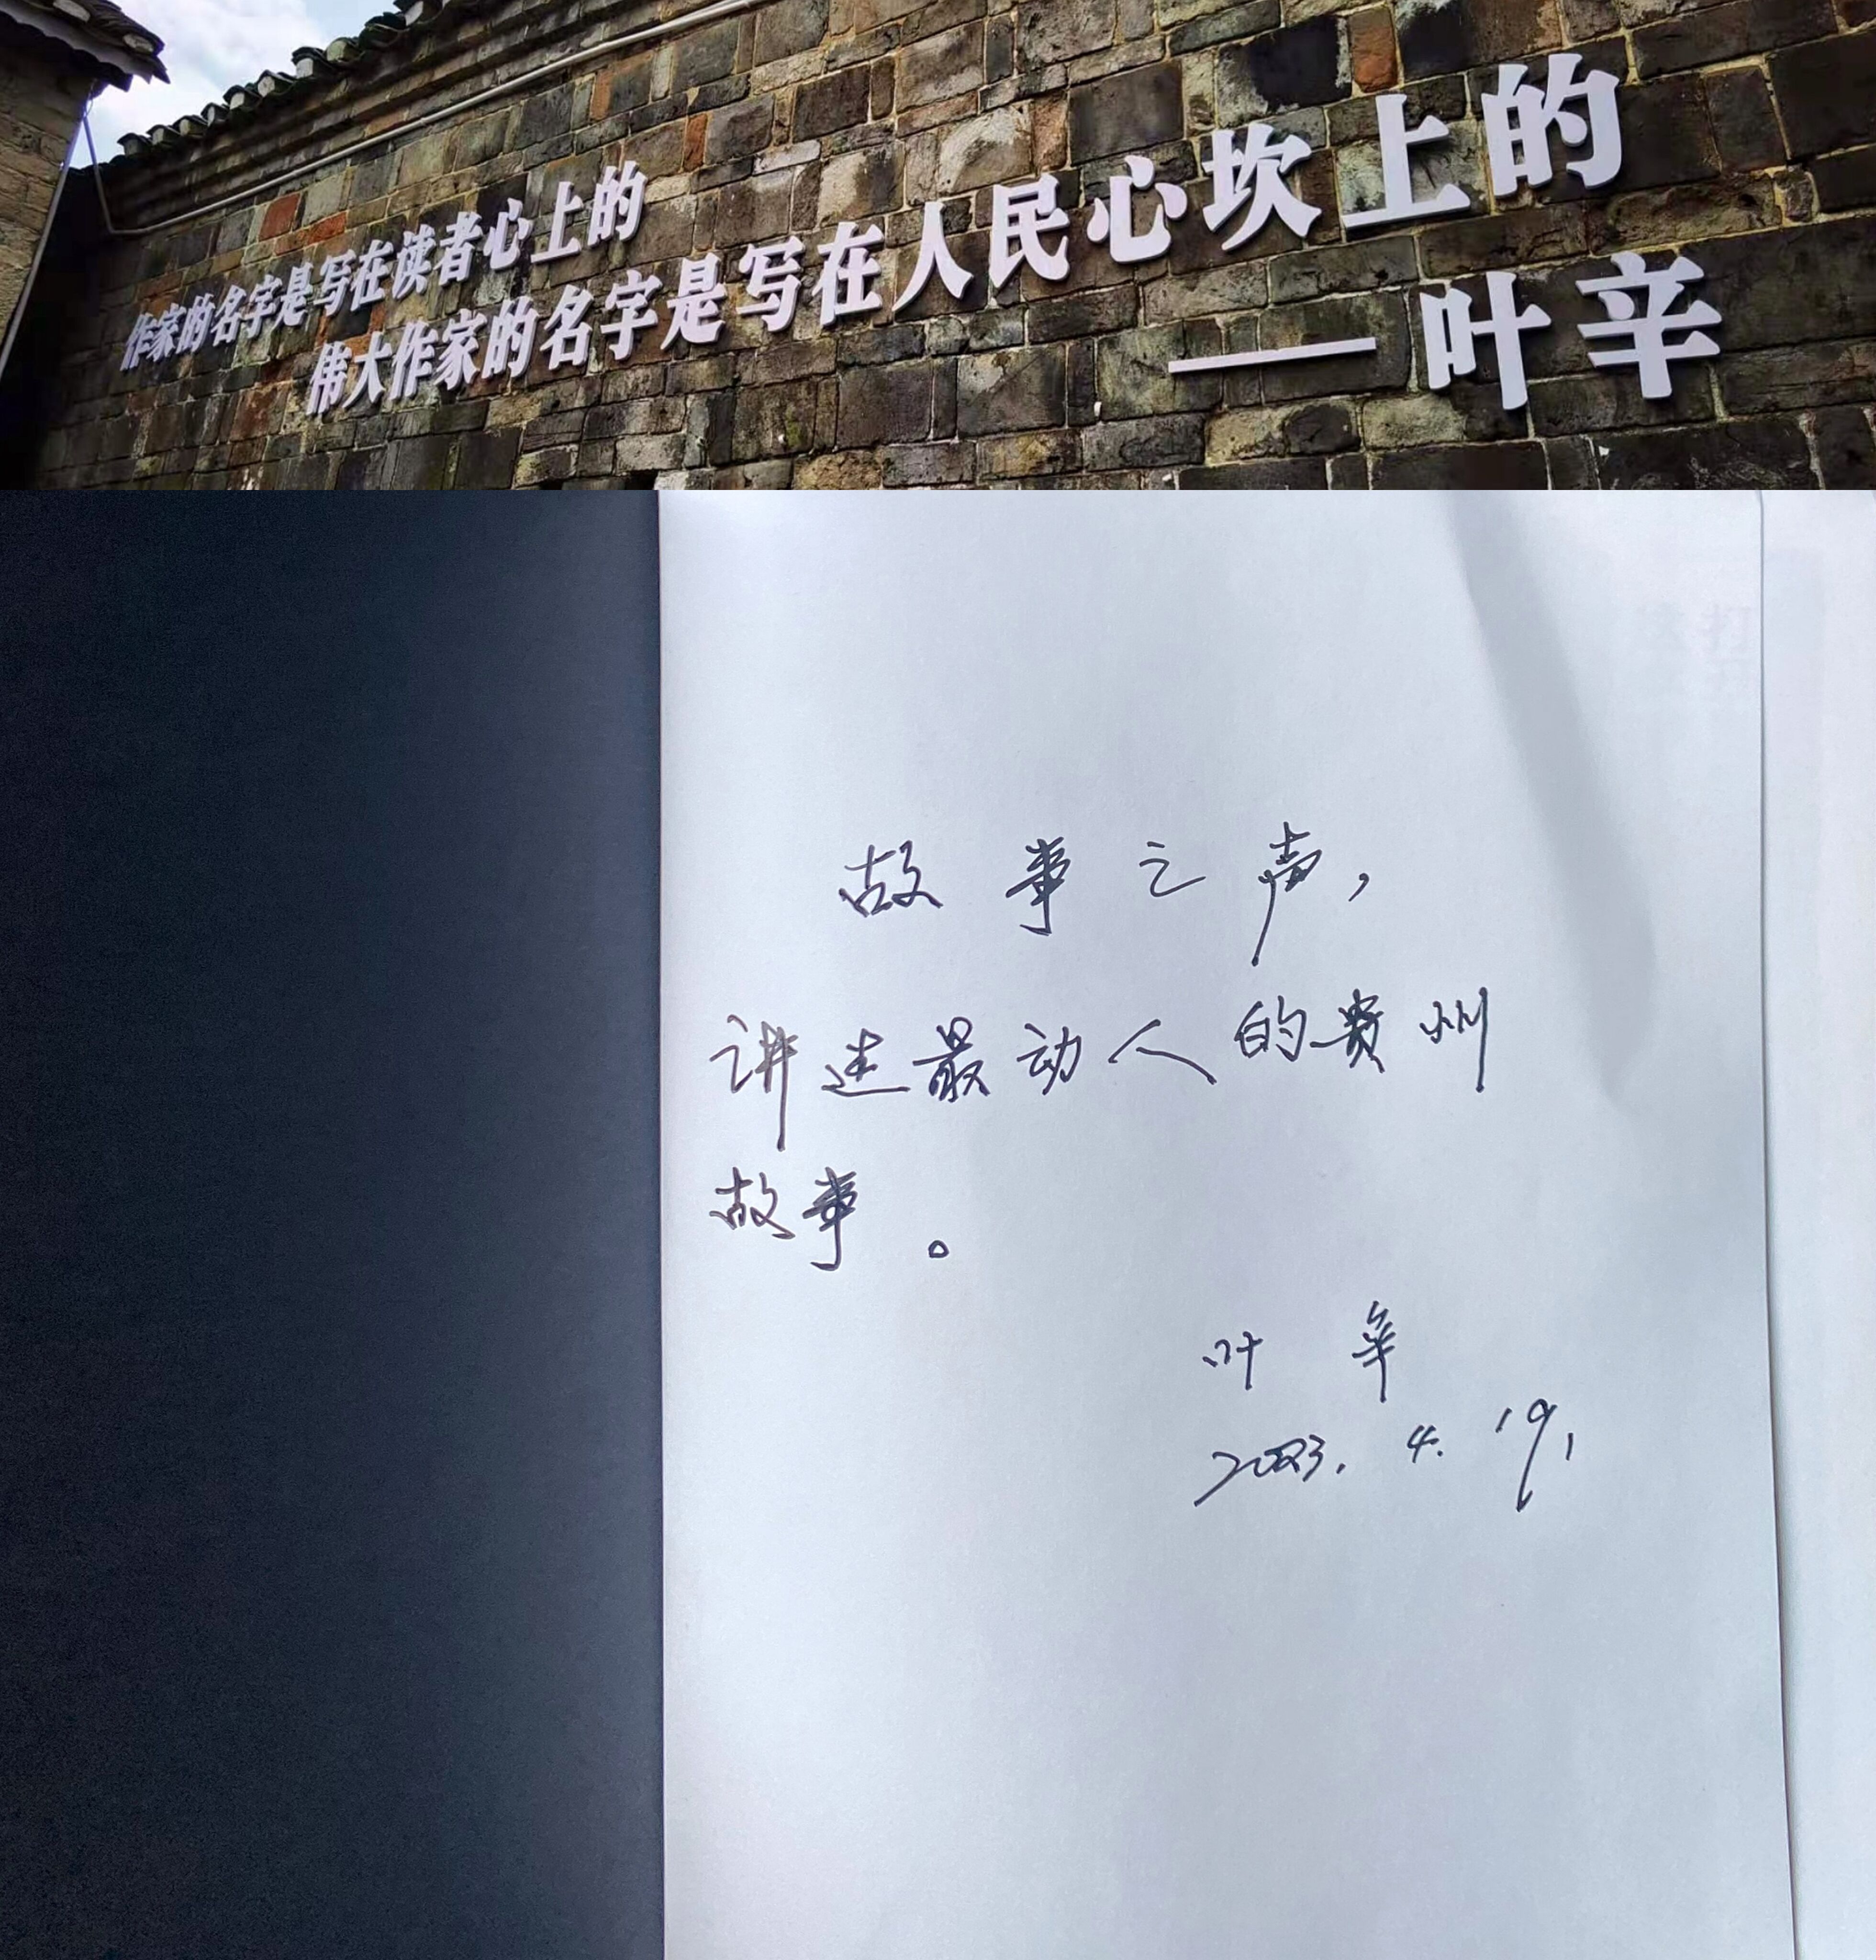 作家的名字是写在读者心上的
伟大作家的名字是写在人民心坎上的
——叶辛
故事之声，
讲述最动人的贵州
故事。
叶辛
2023.4.19.